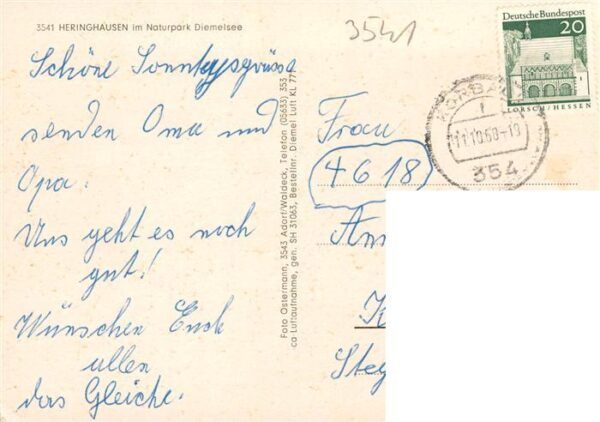 3541 HERINGHAUSEN im Naturpark Diemelsee
3541
Deutsche Bundespost
20
LORSCH/HESSEN
KORBACH
1
11.10.68-10
354
Schöne Sonntagsgrüsse
senden Oma und
Opa.
Uns geht es noch
gut!
Wünschen Euch
allen
das Gleiche.
Foto Ostermann, 3543 Adorf/Waldeck, Telefon (05633) 353
ca Luftaufnahme, gen. SH 31063, Bestellnr. Diemel Luft KL 777
Frau
4618